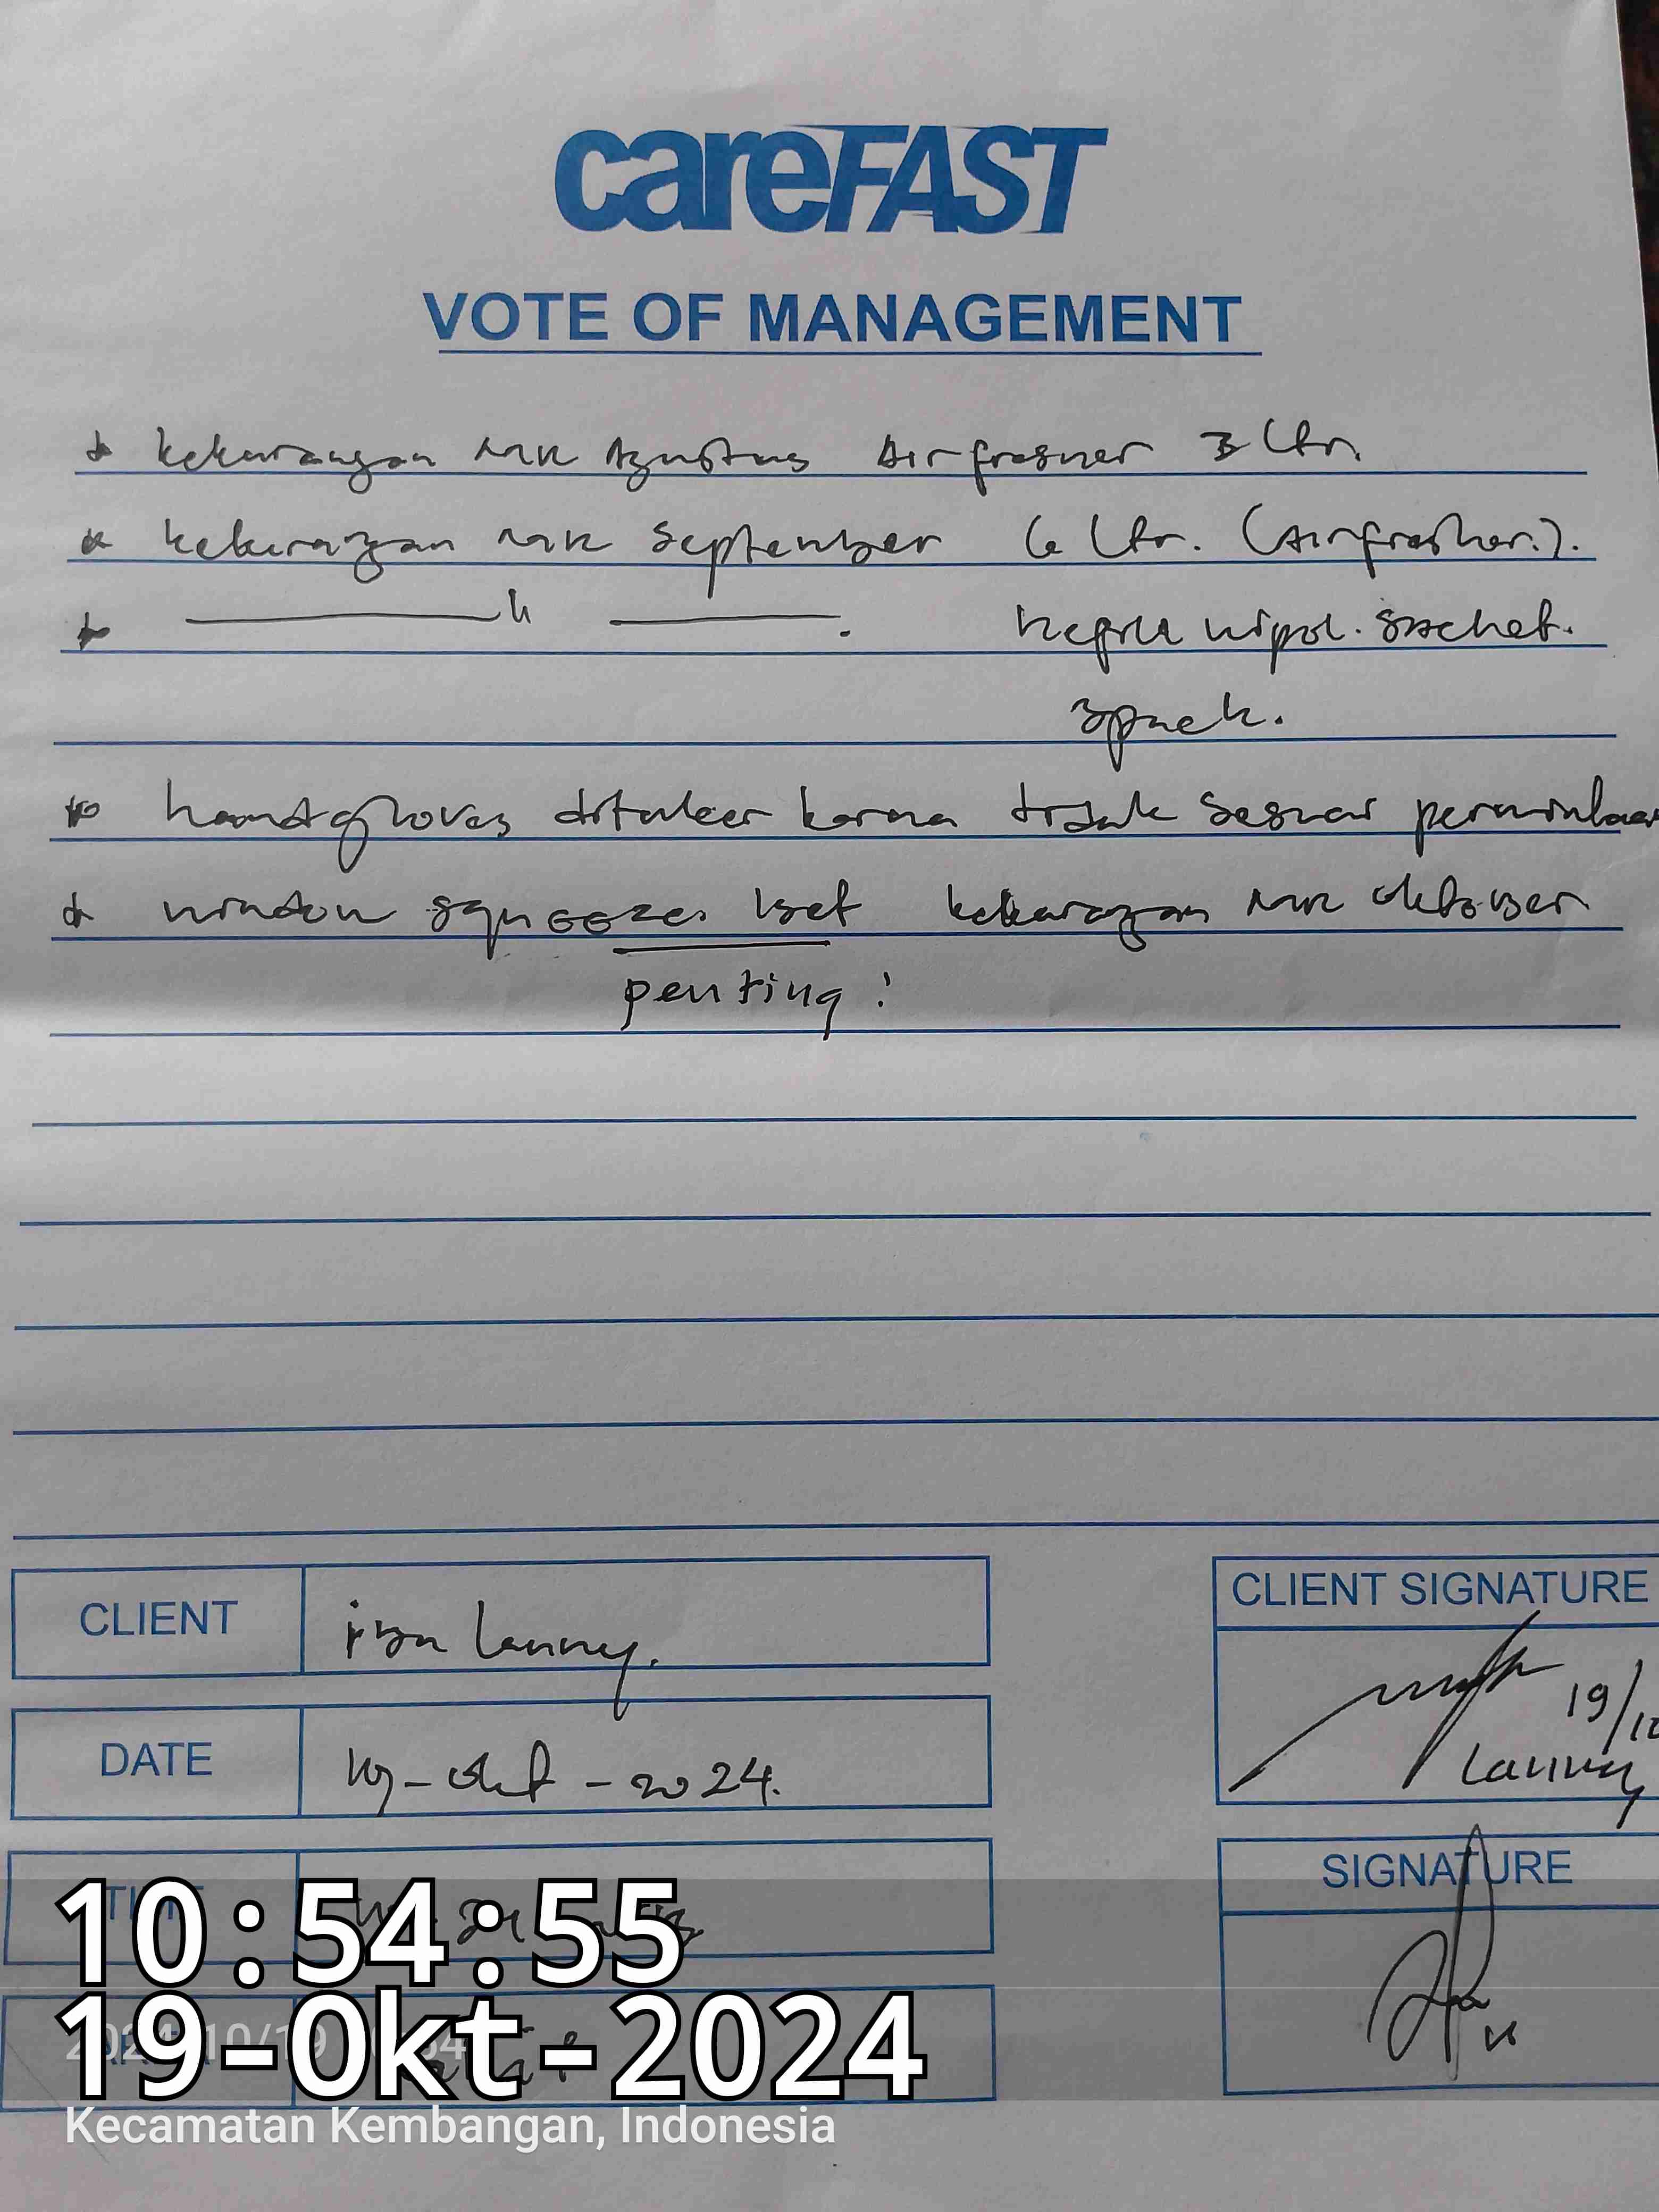 careFAST
VOTE OF MANAGEMENT
* kekurangan MR Agustus Airfresner 3 Ltr.
* kekurangan MR September 6 Ltr. (Airfresher.).
* ——— " ———. wipol. sachet.
3 pack.
* handgloves ditukar karna tidak sesuai permintaan
* window squeezer 1 set kekurangan MR Oktober
penting !
CLIENT
Lanny.
CLIENT SIGNATURE
19/10
Lanny
DATE
19 - Okt - 2024.
SIGNATURE
10:54:55
19-Okt-2024
Kecamatan Kembangan, Indonesia